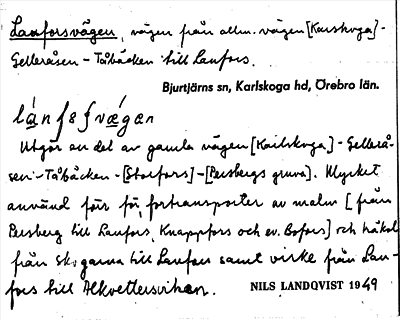 Lanforsvägen, vägen från allm. vägen [Karlskoga]-
Gelleråsen - Tåbäcken till Lanfors.
Bjurtjärns sn, Karlskoga hd, Örebro län.
Utgör en del av gamla vägen [Karlskoga] - Gellerå-
sen - Tåbäcken - [Storfors] - [Persbergs gruva]. Mycket
använd förr för fortransporter av malm [från
Persberg till Lanfors, Knappfors och ev. Bofors] och träkol
från skogarna till Lanfors samt virke från Lan-
fors till Alkvettersvikan.
NILS LANDQVIST 1949